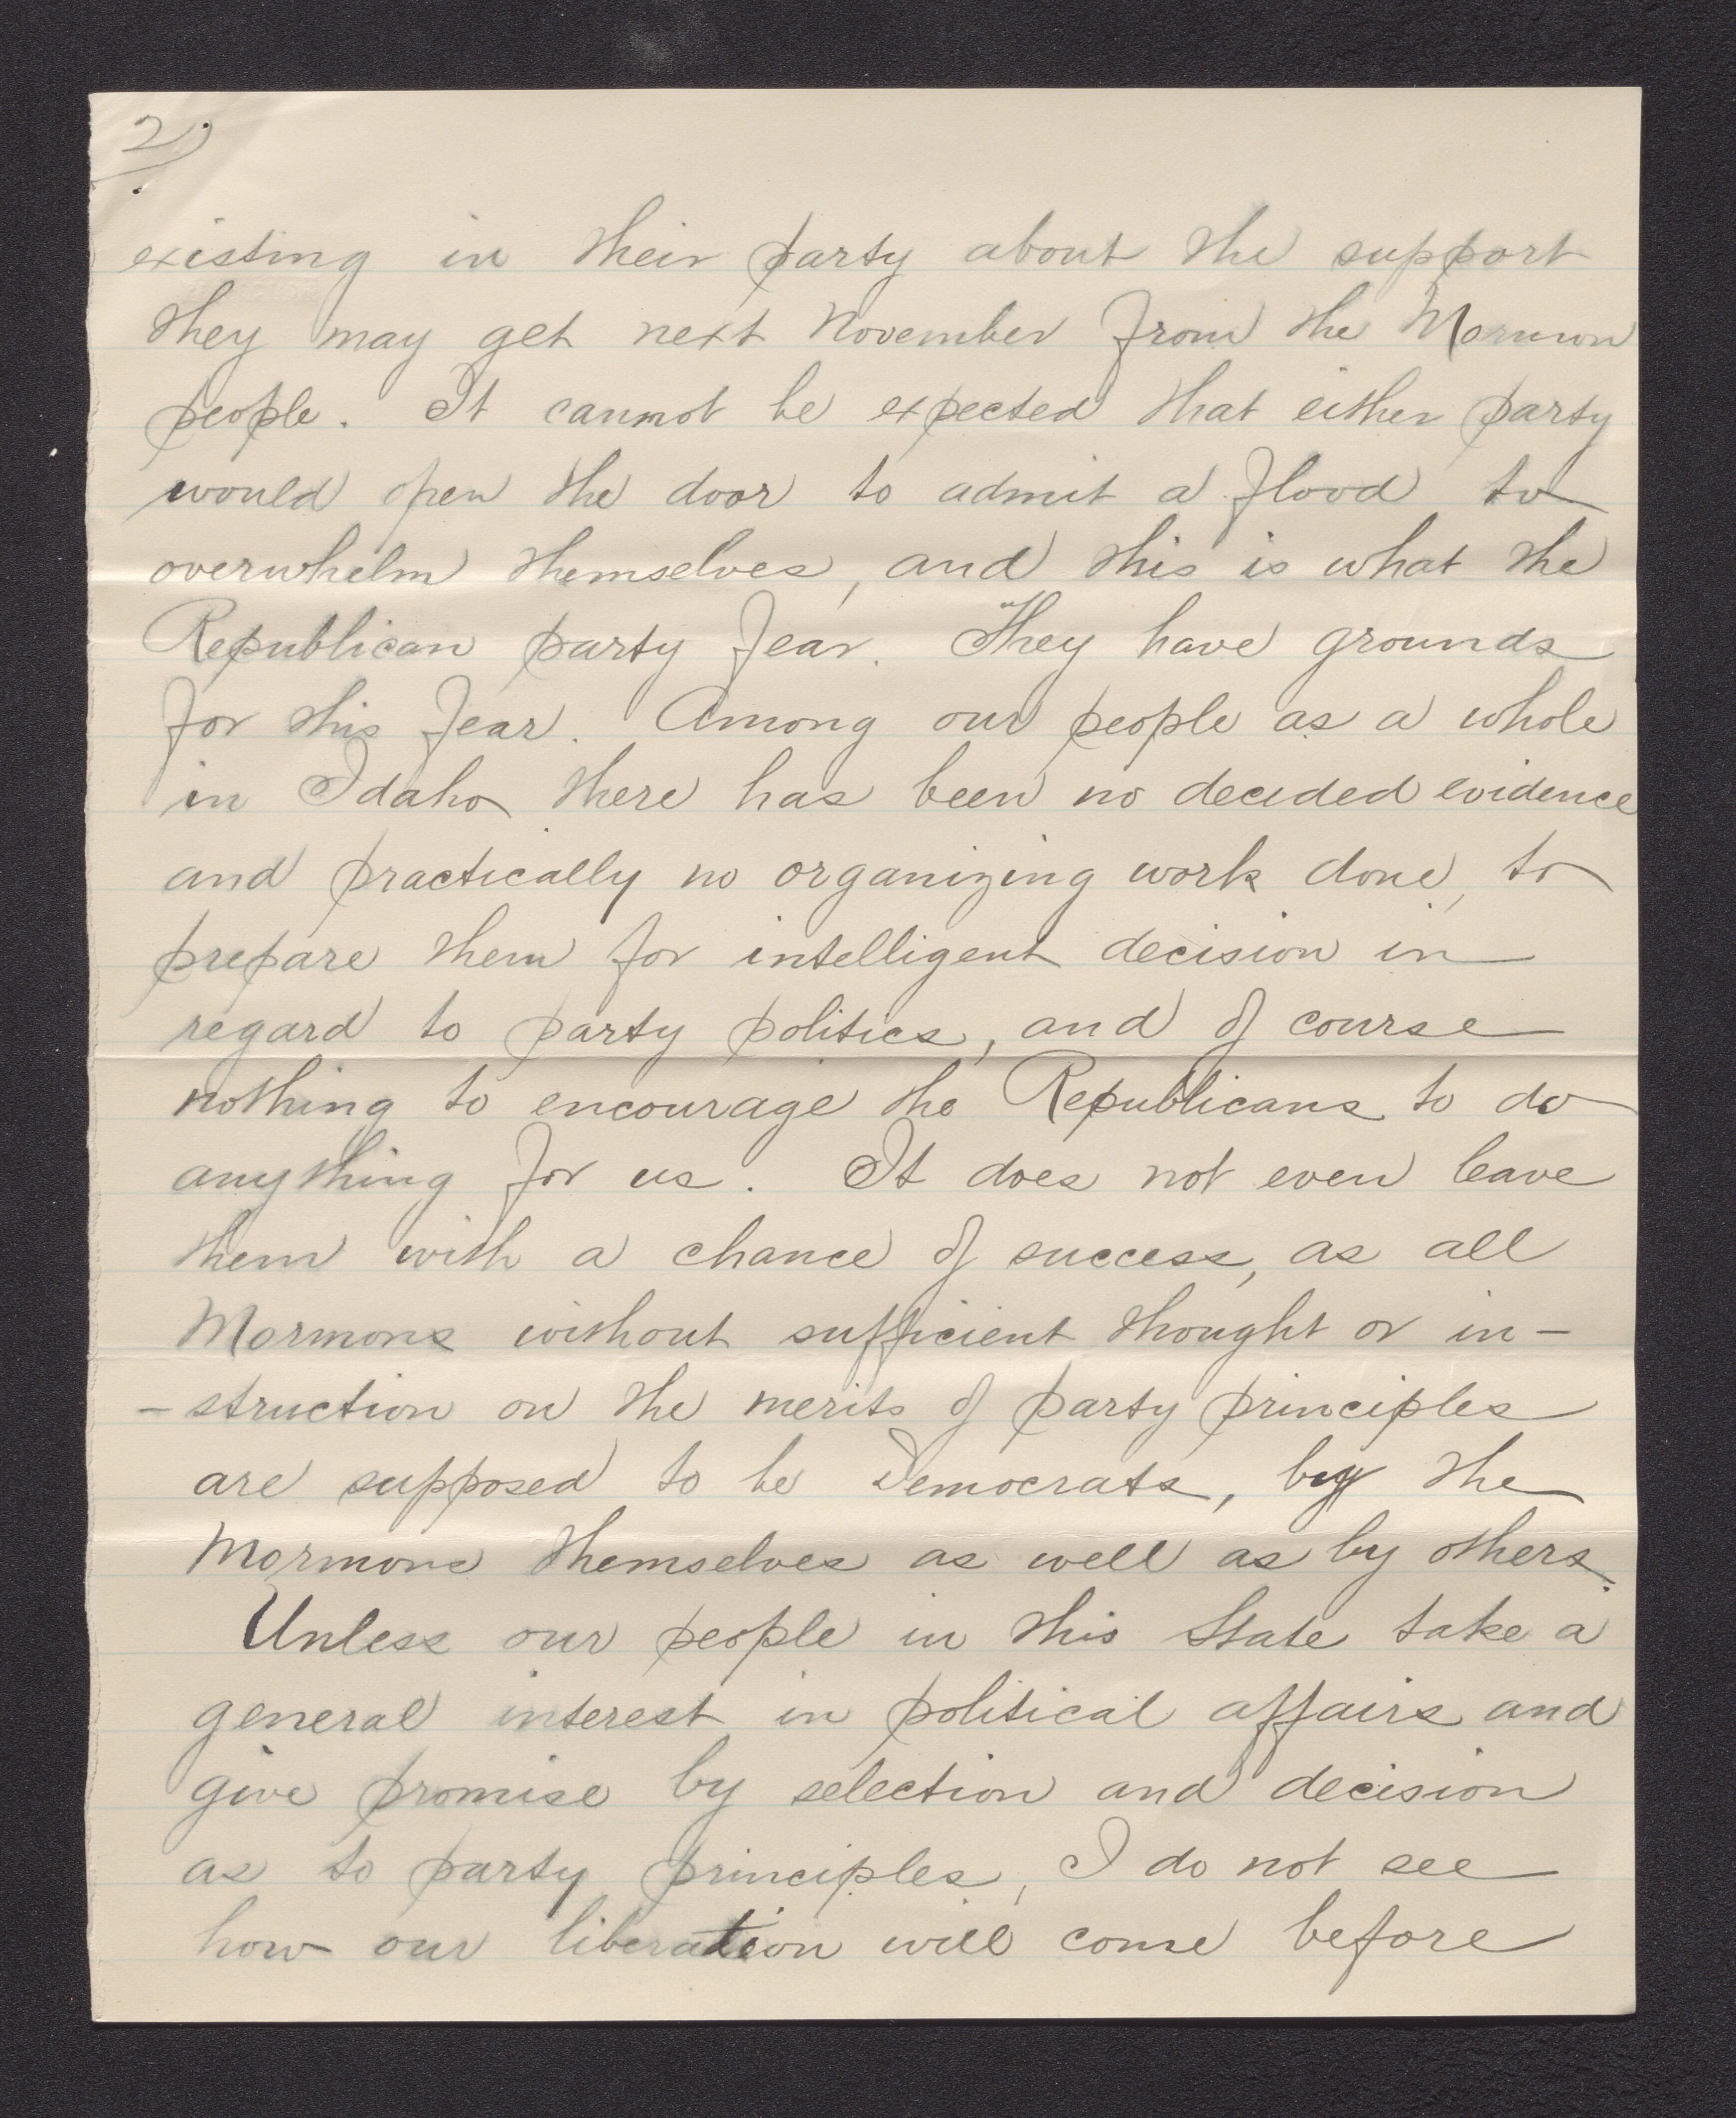 2)
existing in their party about the support
they may get next November from the Mormon
people. It cannot be expected that either party
would open the door to admit a flood to
overwhelm themselves, and this is what the
Republican party fear. They have grounds
for this fear. Among our people as a whole
in Idaho there has been no decided evidence
and practically no organizing work done, to
prepare them for intelligent decision in
regard to party politics, and of course
nothing to encourage the Republicans to do
anything for us. It does not even leave
them with a chance of success, as all
Mormons without sufficient thought or in-
-struction on the merits of party principles
are supposed to be Democrats, by the
Mormons themselves as well as by others.
Unless our people in this State take a
general interest in political affairs and
give promise by selection and decision
as to party principles, I do not see
how our liberation will come before